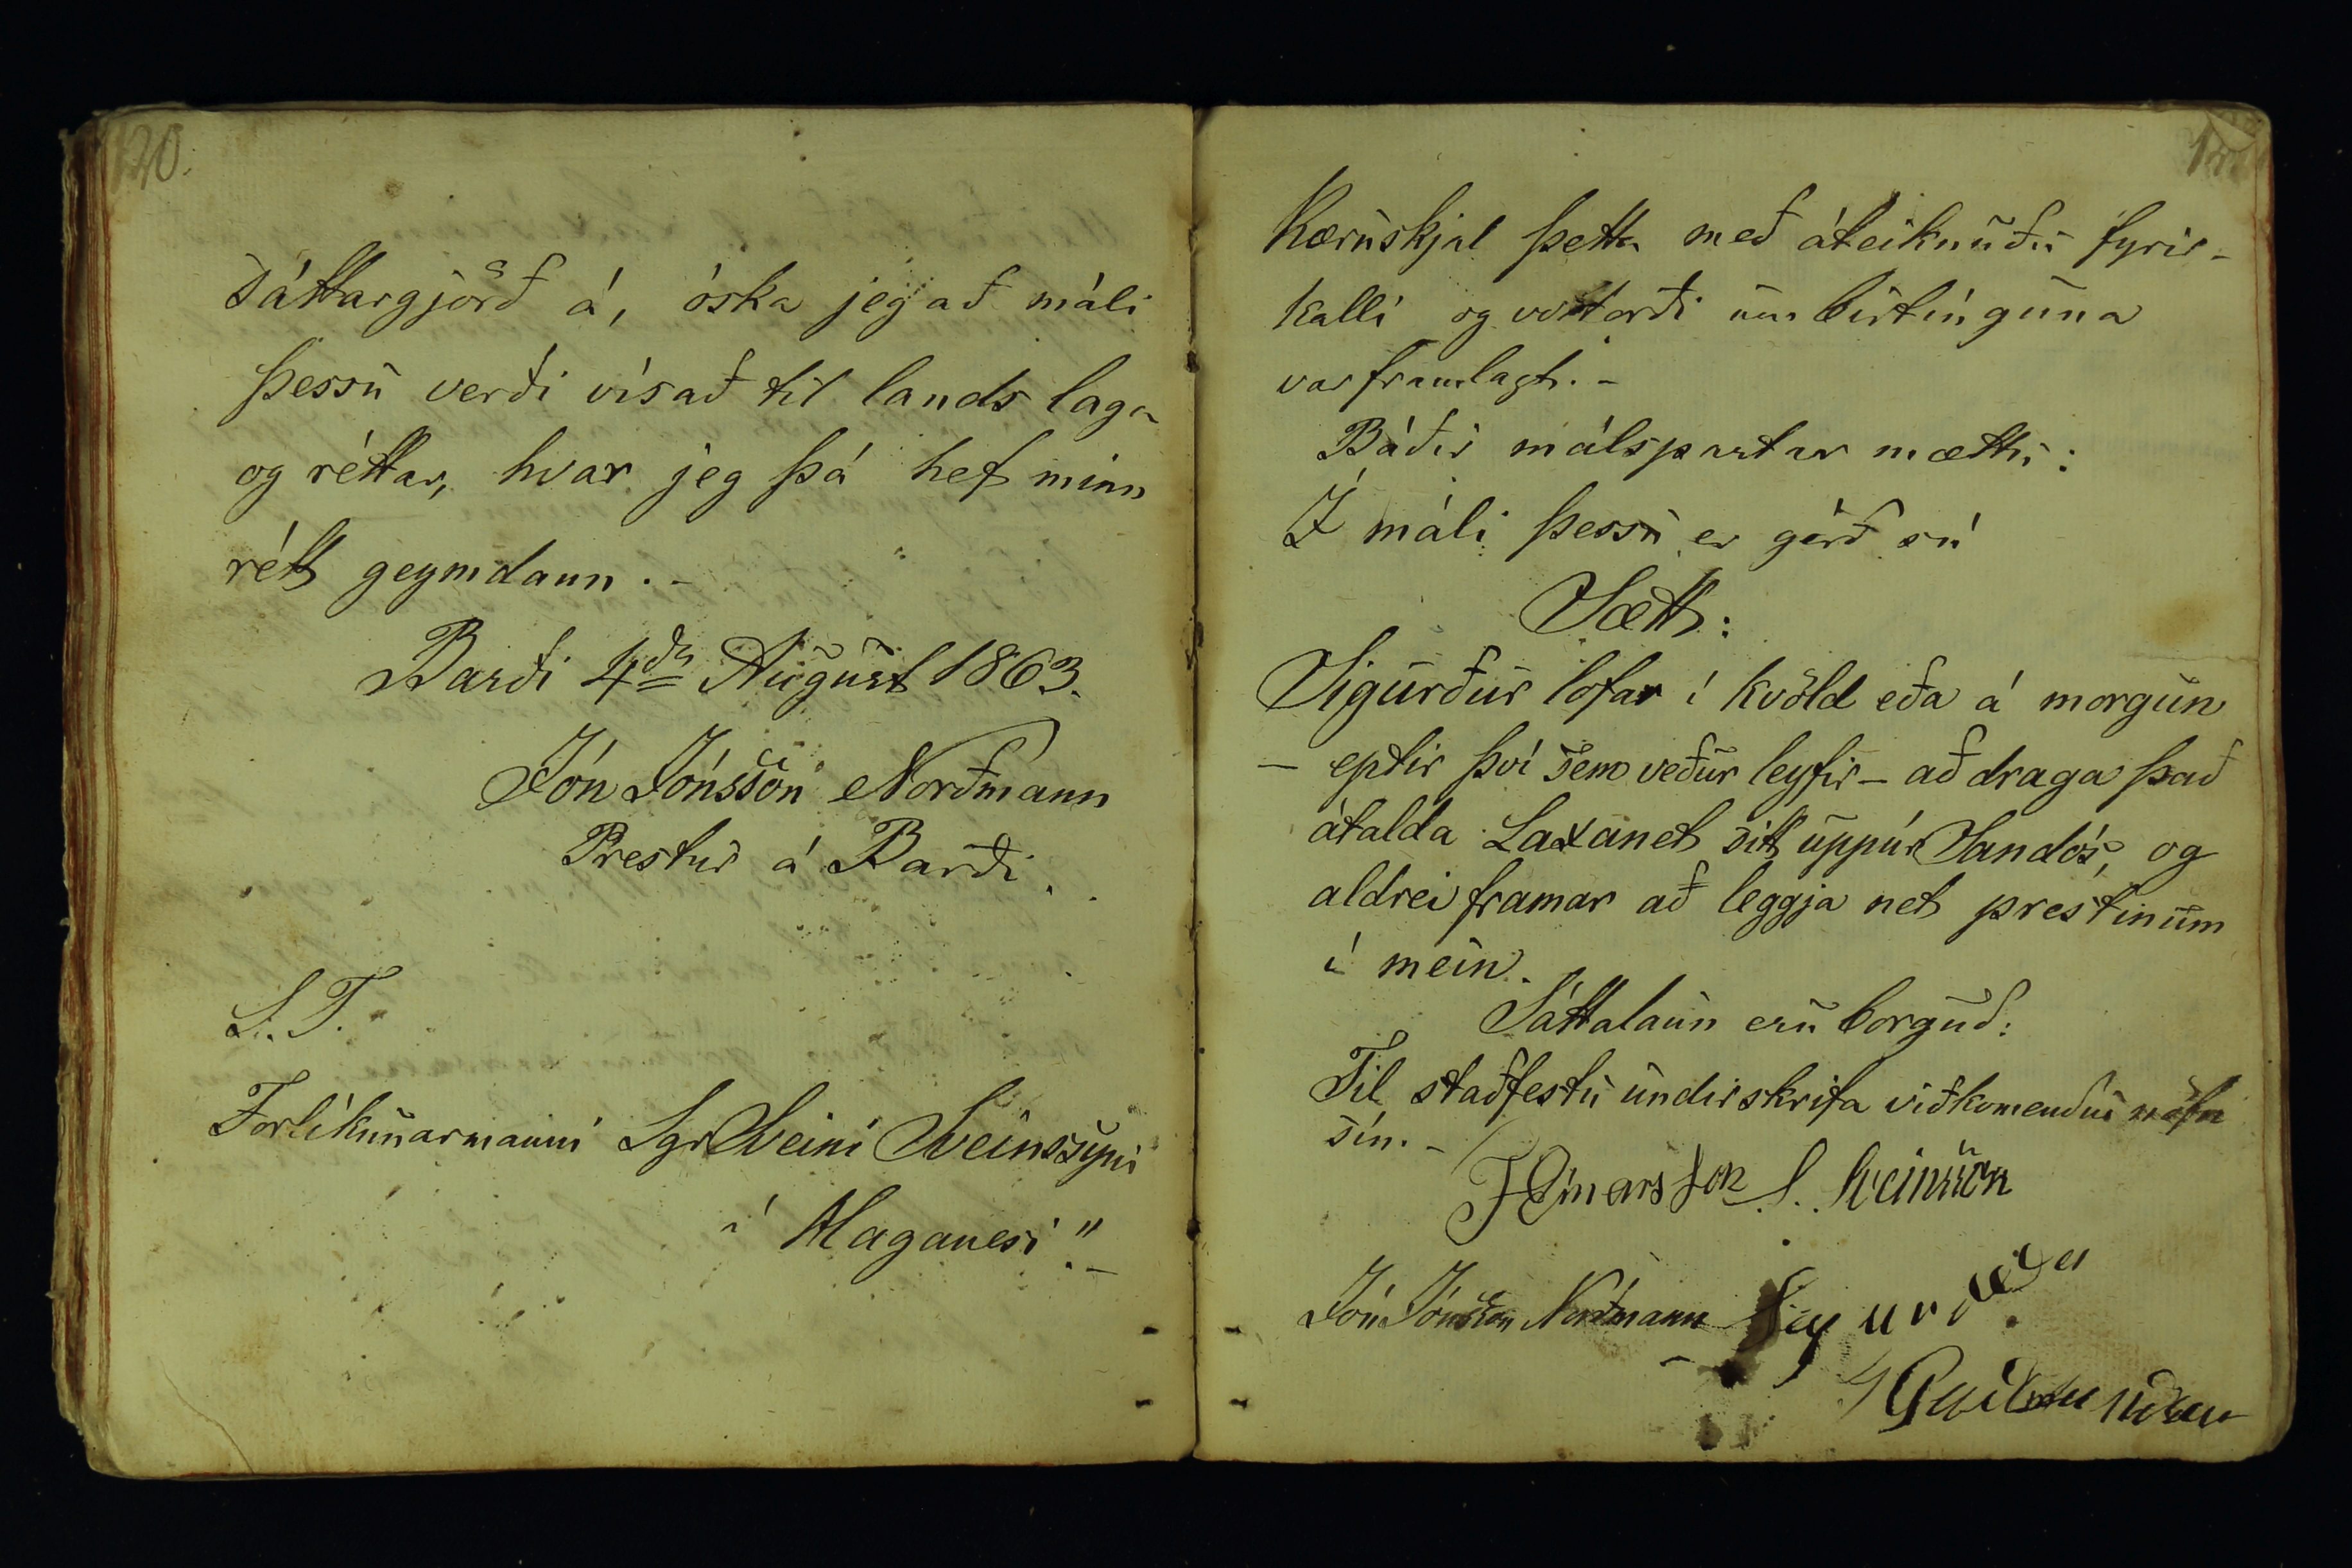 120.
sáttargjörð á, óska jeg að máli
þessu verði vísað til lands laga
og réttar, hvar jeg þá hef minn
rétt geymdann. -
Barði 4ða August 1863.
Jón Jónsson Norðmann
Prestur á Barði.
S. T.
Forlíkunarmanni Sgr Sveini Sveinssyni
í Haganesi." -
Kæruskjal þetta með áteiknuðu fyrir-
kalli og vottorði um birtínguna
var framlagt. -
Báðir málspartar mættu:
Í máli þessu er gérð sú
Sætt:
Sigurður lofar í kvöld eða á morgun
- eptir því sem veður leyfir - að draga það
átalda Laxanet sitt uppúr Sandós, og
aldrei framar að leggja net prestinum
í mein.
Sáttalaun eru borguð:
Til staðfestu undirskrifa viðkomendur nöfn
sín. -
J Einarsson S. Sveinsson
Jón Jónsson Norðmann Sigurður